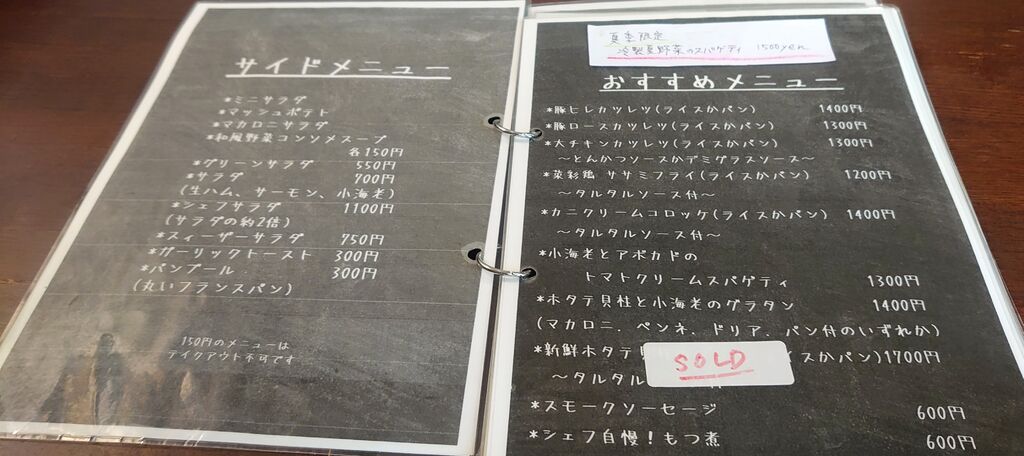 サイドメニュー
*ミニサラダ
*マッシュポテト
*マカロニサラダ
*和風野菜コンソメスープ
各150円
*グリーンサラダ 550円
*サラダ 700円
(生ハム、サーモン、小海老)
*シェフサラダ 1100円
(サラダの約2倍)
*スィーザーサラダ 750円
*ガーリックトースト 300円
*パンブール 300円
(丸いフランスパン)
150円のメニューは
テイクアウト不可です
夏季限定
冷製夏野菜のスパゲティ 1500yen
おすすめメニュー
*豚ヒレカツレツ(ライスかパン) 1400円
*豚ロースカツレツ(ライスかパン) 1300円
*大チキンカツレツ(ライスかパン) 1300円
～とんかつソースかデミグラスソース～
*菜彩鶏 ササミフライ(ライスかパン) 1200円
～タルタルソース付～
*カニクリームコロッケ(ライスかパン) 1400円
～タルタルソース付～
*小海老とアボカドの
トマトクリームスパゲティ 1300円
*ホタテ貝柱と小海老のグラタン 1400円
(マカロニ、ペンネ、ドリア、パン付のいずれか)
*新鮮ホタテ SOLD イスかパン)1700円
～タルタル
*スモークソーセージ 600円
*シェフ自慢!もつ煮 600円